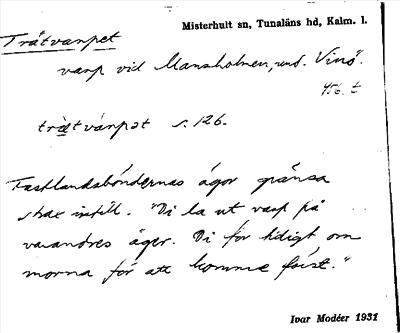 Misterhult sn, Tunaläns hd, Kalm. l.
Tråtvarpet
varp vid Mansholmen, und. Vinö.
456. t
trätvárpət s. 126.
Fastlandsböndernas ägor gränsa
strax intill. "Di la ut varp på
varandres äger. Di för tidigt om
morna för att komma först."
Ivar Modéer 1931